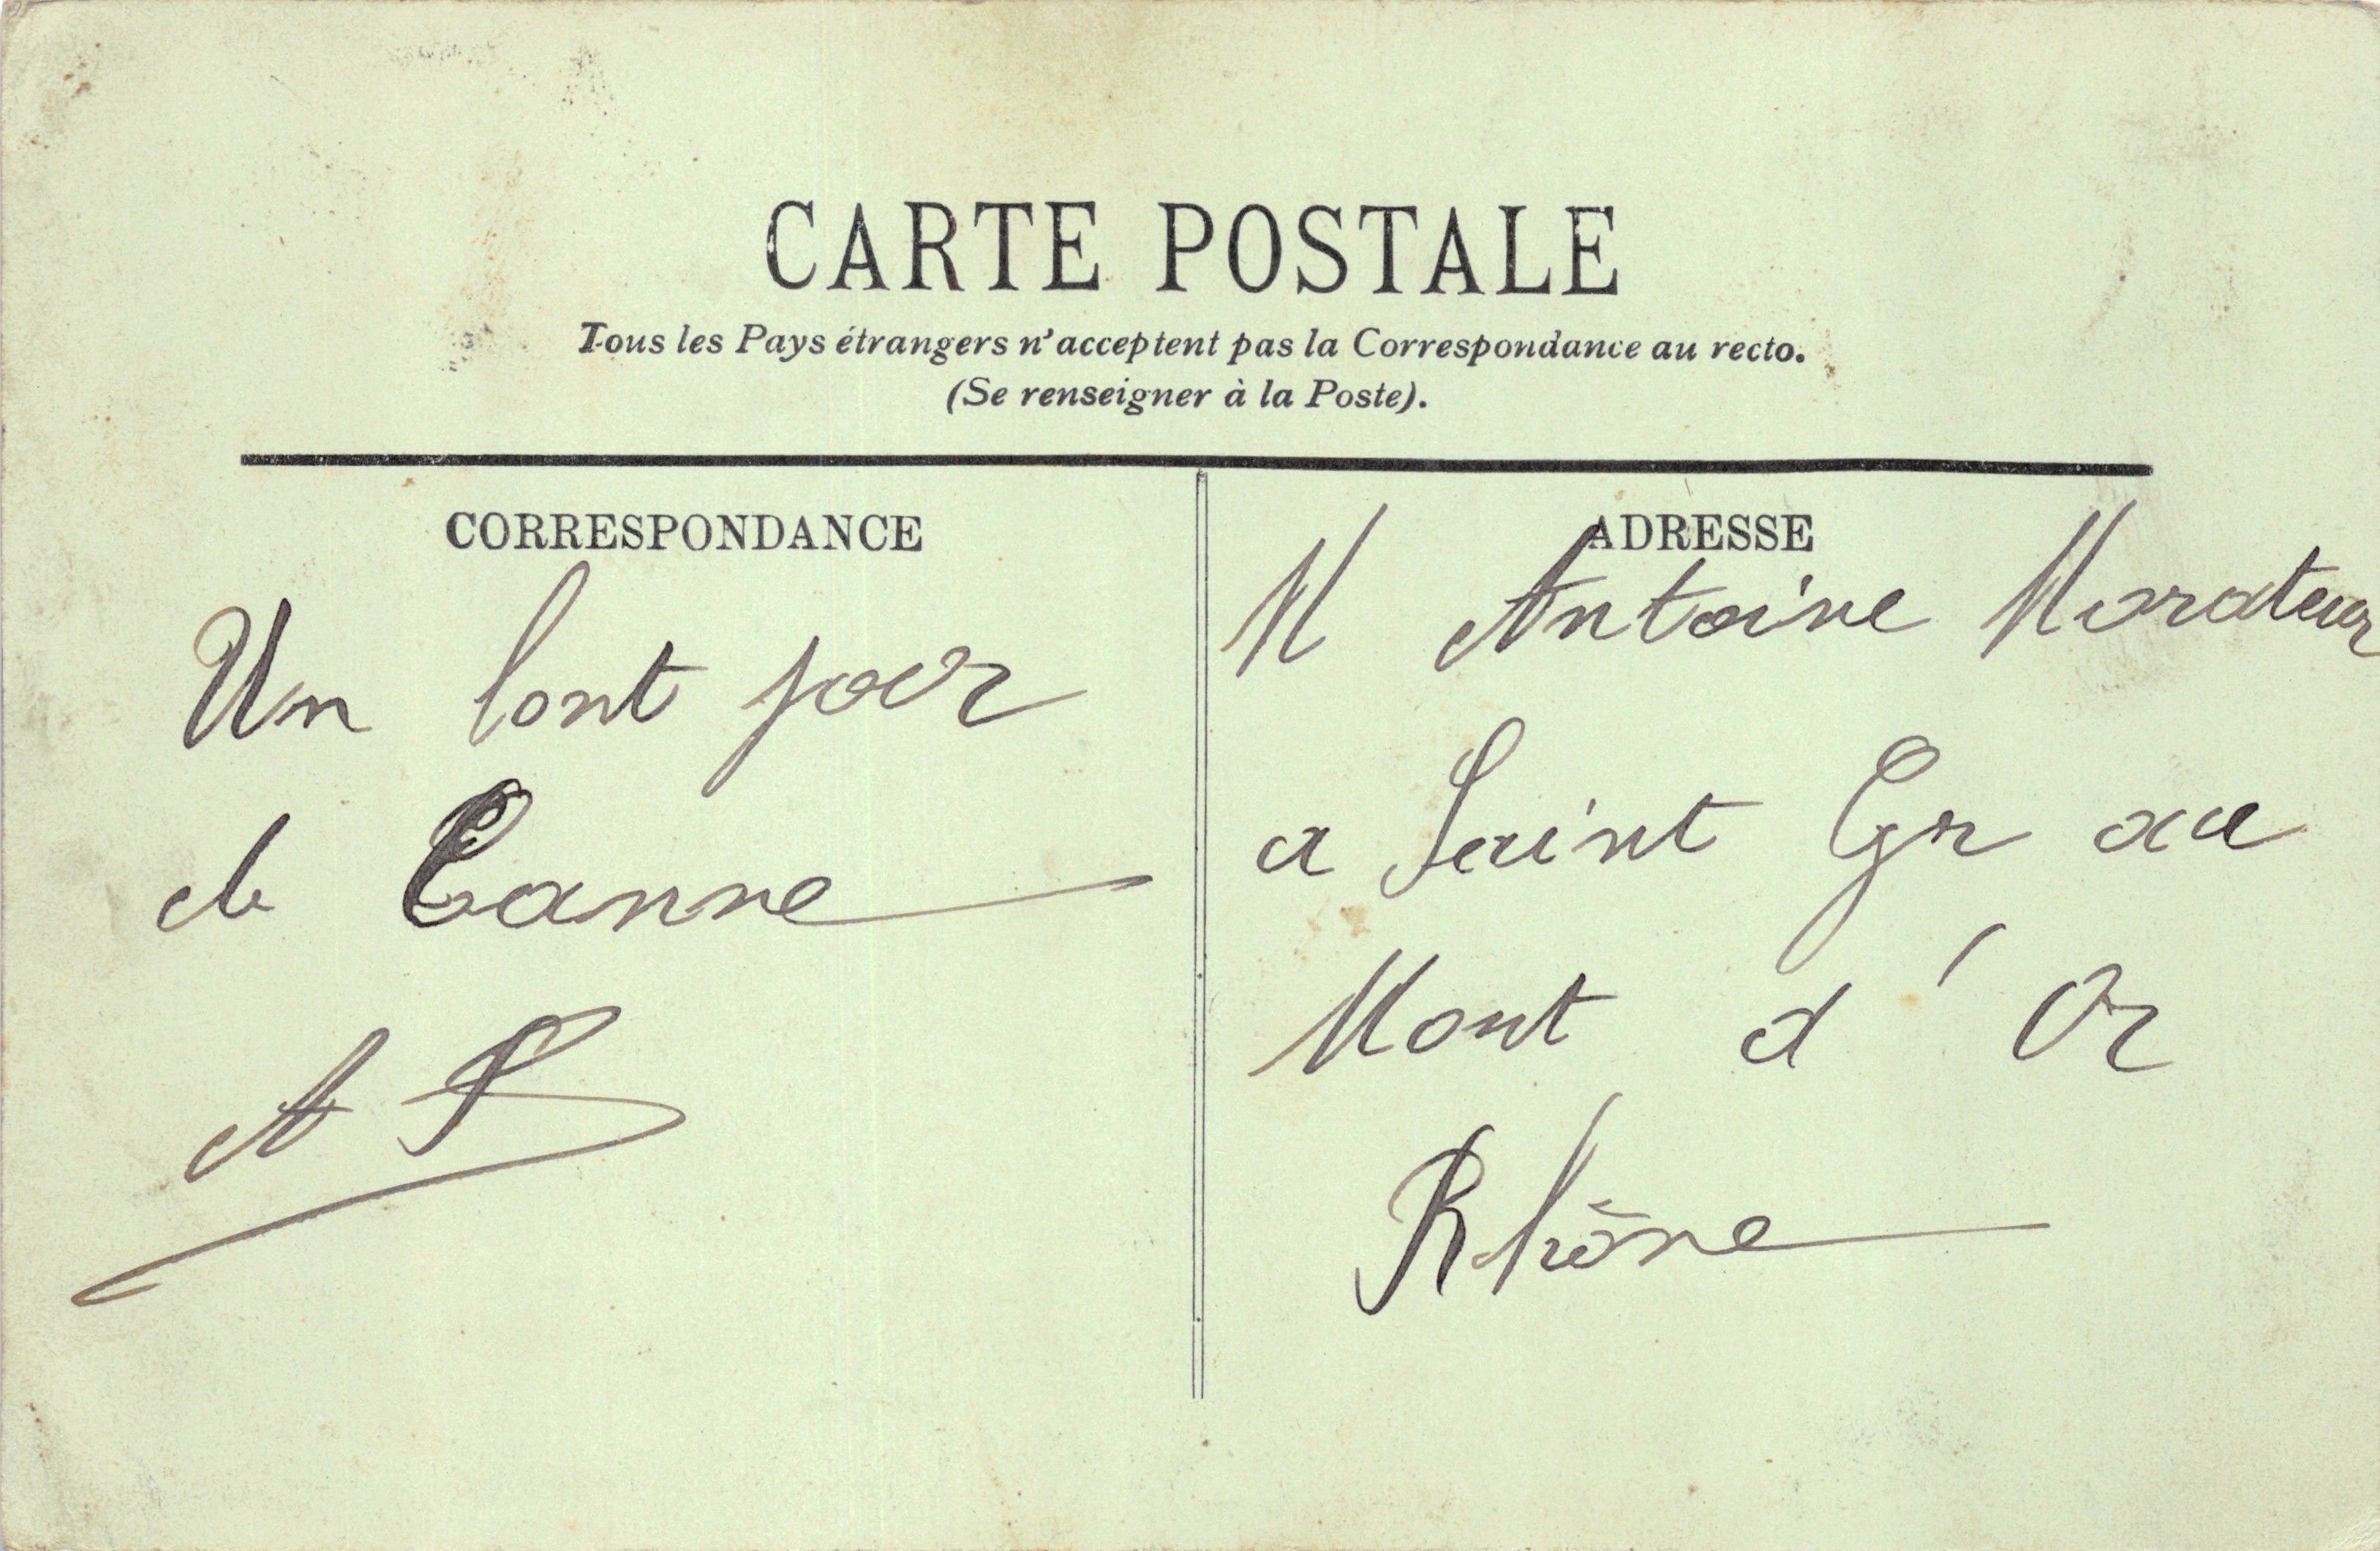 CARTE POSTALE
Tous les Pays étrangers n'acceptent pas la Correspondance au recto.
(Se renseigner à la Poste).
CORRESPONDANCE
Un bont jour
de Canne
A
ADRESSE
M Antoine Morateur
a Saint Gr au
Mont d'Or
Rhône